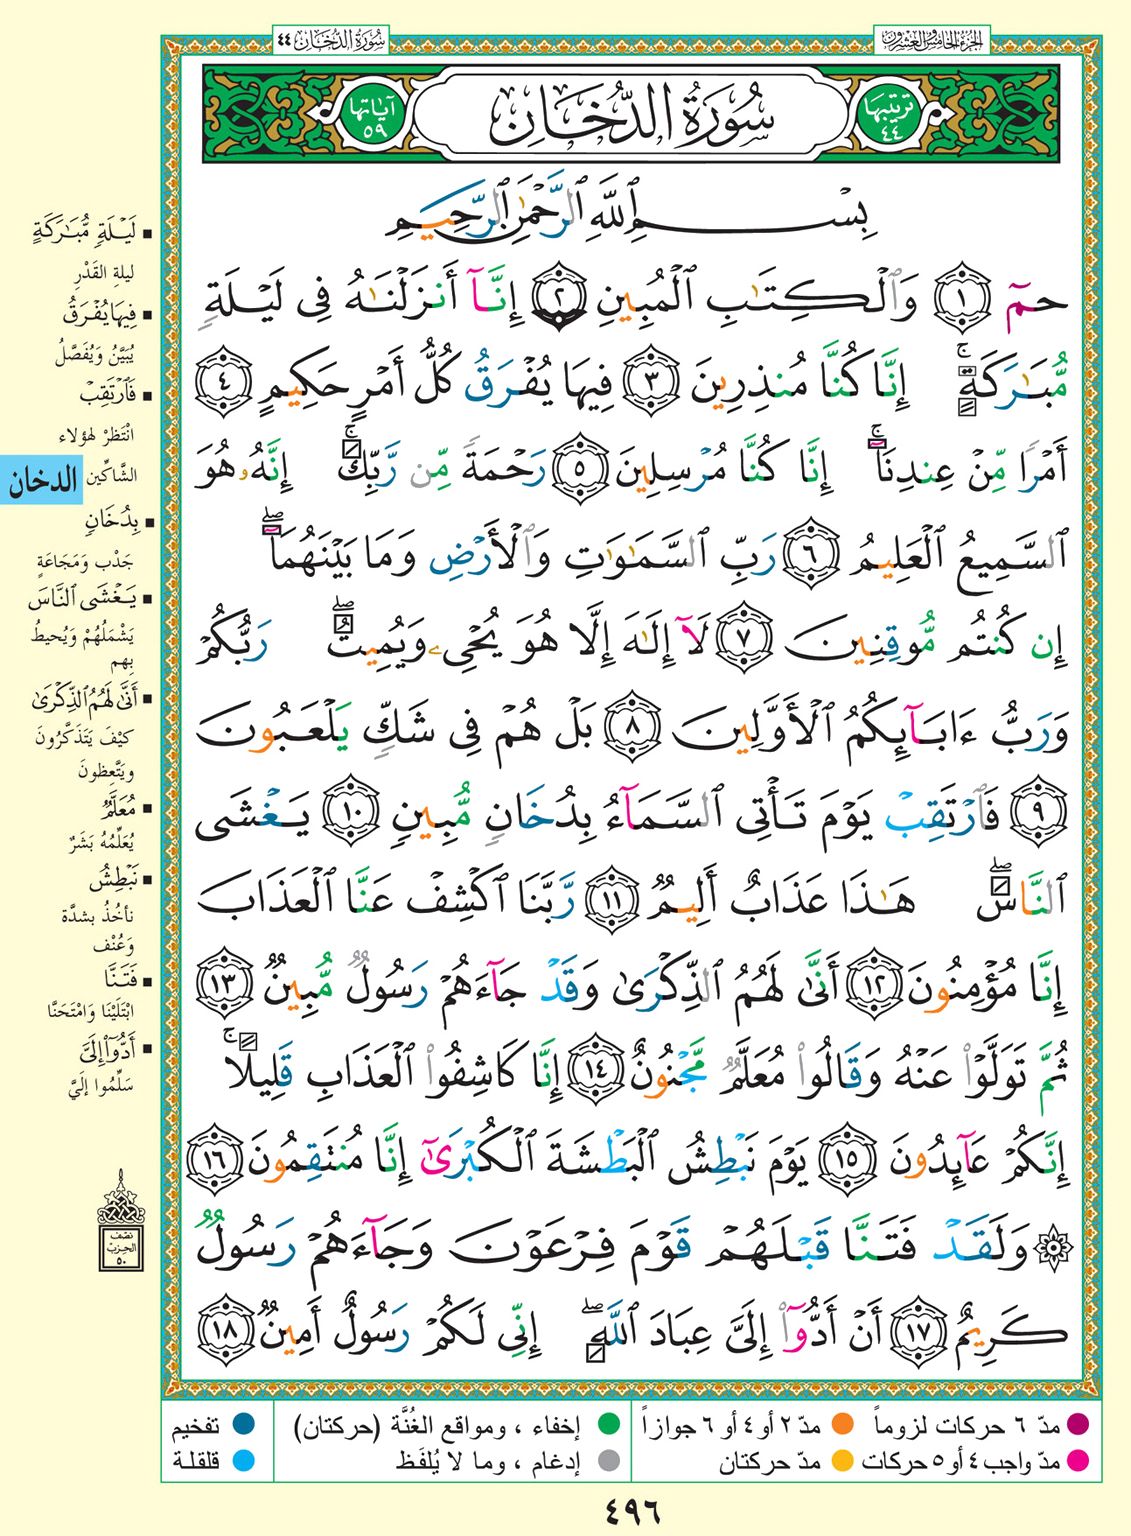 الجزء الخامس والعشرون
سُورَةُ الدُّخَان ٤٤
ترتيبها ٤٤
سُورَةُ الدُّخَانِ
آياتها ٥٩
بِسْمِ ٱللَّهِ ٱلرَّحْمَٰنِ ٱلرَّحِيمِ
حمٓ ١ وَٱلْكِتَٰبِ ٱلْمُبِينِ ٢ إِنَّآ أَنزَلْنَٰهُ فِى لَيْلَةٍ
مُّبَٰرَكَةٍ ۚ إِنَّا كُنَّا مُنذِرِينَ ٣ فِيهَا يُفْرَقُ كُلُّ أَمْرٍ حَكِيمٍ ٤
أَمْرًا مِّنْ عِندِنَآ ۚ إِنَّا كُنَّا مُرْسِلِينَ ٥ رَحْمَةً مِّن رَّبِّكَ ۚ إِنَّهُۥ هُوَ
ٱلسَّمِيعُ ٱلْعَلِيمُ ٦ رَبِّ ٱلسَّمَٰوَٰتِ وَٱلْأَرْضِ وَمَا بَيْنَهُمَآ ۖ
إِن كُنتُم مُّوقِنِينَ ٧ لَآ إِلَٰهَ إِلَّا هُوَ يُحْىِۦ وَيُمِيتُ ۖ رَبُّكُمْ
وَرَبُّ ءَابَآئِكُمُ ٱلْأَوَّلِينَ ٨ بَلْ هُمْ فِى شَكٍّ يَلْعَبُونَ
٩ فَٱرْتَقِبْ يَوْمَ تَأْتِى ٱلسَّمَآءُ بِدُخَانٍ مُّبِينٍ ١٠ يَغْشَى
ٱلنَّاسَ ۖ هَٰذَا عَذَابٌ أَلِيمٌ ١١ رَّبَّنَا ٱكْشِفْ عَنَّا ٱلْعَذَابَ
إِنَّا مُؤْمِنُونَ ١٢ أَنَّىٰ لَهُمُ ٱلذِّكْرَىٰ وَقَدْ جَآءَهُمْ رَسُولٌ مُّبِينٌ ١٣
ثُمَّ تَوَلَّوْا۟ عَنْهُ وَقَالُوا۟ مُعَلَّمٌ مَّجْنُونٌ ١٤ إِنَّا كَاشِفُوا۟ ٱلْعَذَابِ قَلِيلًا ۚ
إِنَّكُمْ عَآئِدُونَ ١٥ يَوْمَ نَبْطِشُ ٱلْبَطْشَةَ ٱلْكُبْرَىٰٓ إِنَّا مُنتَقِمُونَ ١٦
۞ وَلَقَدْ فَتَنَّا قَبْلَهُمْ قَوْمَ فِرْعَوْنَ وَجَآءَهُمْ رَسُولٌ
كَرِيمٌ ١٧ أَنْ أَدُّوٓا۟ إِلَىَّ عِبَادَ ٱللَّهِ ۖ إِنِّى لَكُمْ رَسُولٌ أَمِينٌ ١٨
■ لَيْلَةٍ مُّبَٰرَكَةٍ
ليلةِ القَدْرِ
■ فِيهَا يُفْرَقُ
يُبَيَّنُ وَيُفَصَّلُ
■ فَٱرْتَقِبْ
انْتَظِرْ لهؤلاء
الشَّاكِّين
الدخان
■ بِدُخَانٍ
جَدْب وَمَجَاعَةٍ
■ يَغْشَى ٱلنَّاسَ
يَشْمَلُهُمْ وَيُحيطُ
بِهِم
■ أَنَّىٰ لَهُمُ ٱلذِّكْرَىٰ
كيْفَ يَتَذَكَّرُونَ
ويَتَّعِظونَ
■ مُعَلَّمٌ
يُعَلِّمُهُ بَشَرٌ
■ نَبْطِشُ
نأخُذُ بشدَّة
وَعُنْف
■ فَتَنَّا
ابْتَلَيْنَا وَامْتَحَنَّا
■ أَدُّوٓا۟ إِلَىَّ
سَلِّمُوا إلَيَّ
نصف
الحزب
٥٠
مدّ ٦ حركات لزوماً مدّ ٢ أو ٤ أو ٦ جوازاً إخفاء ، ومواقع الغُنَّة (حركتان) تفخيم
مدّ واجب ٤ أو ٥ حركات مدّ حركتان إدغام ، وما لا يُلفَظ قلقلة
٤٩٦